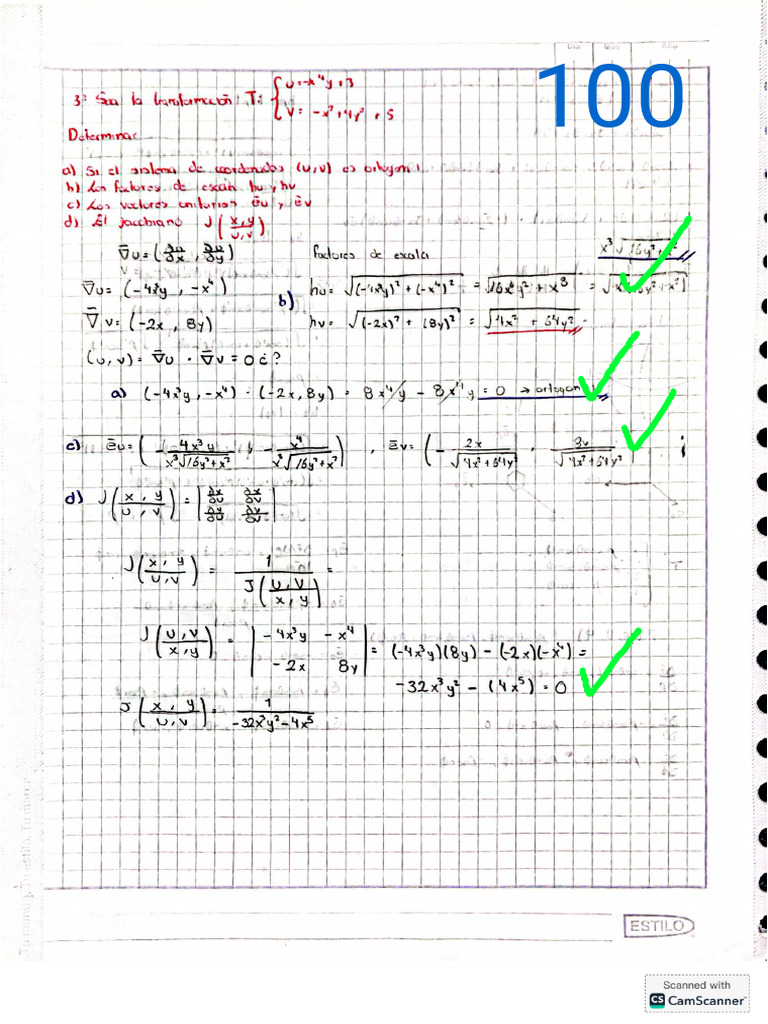 Día Mes Año
100
3: Sea la transformación: T: { u = -x⁴y + 3
v = -x² + 4y² + 5
Determinar
a) Si el sistema de coordenadas (u,v) es ortogonal
b) Los factores de escala hu y hv
c) Los vectores unitarios ēu y ēv
d) El jacobiano J(x,y / u,v)
∇̄u = (∂u/∂x, ∂u/∂y) Factores de exala
∇̄u = (-4x³y, -x⁴) b) hu = √((-4x³y)² + (-x⁴)²) = √(16x⁶y² + x⁸)
∇̄v = (-2x, 8y) hv = √((-2x)² + (8y)²) = √(4x² + 64y²)
(u,v) = ∇̄u · ∇̄v = 0 ¿?
a) (-4x³y, -x⁴) · (-2x, 8y) = 8x⁴y - 8x⁴y = 0 → ortogonal
c) ēu = (- 4x³y / x³√(16y²+x²), - x⁴ / x³√(16y²+x²)), ēv = (- 2x / √(4x²+64y²),
d) J(x,y / u,v) = | ∂x/∂u ∂x/∂v
J(x,y / u,v) = 1 / J(u,v / x,y) =
J(u,v / x,y) = | -4x³y -x⁴
-2x 8y | = (-4x³y)(8y) - (-2x)(-x⁴) =
-32x³y² - (4x⁵) = 0
J(x,y / u,v) = 1 / -32x³y² - 4x⁵
ESTILO
Scanned with
CS CamScanner